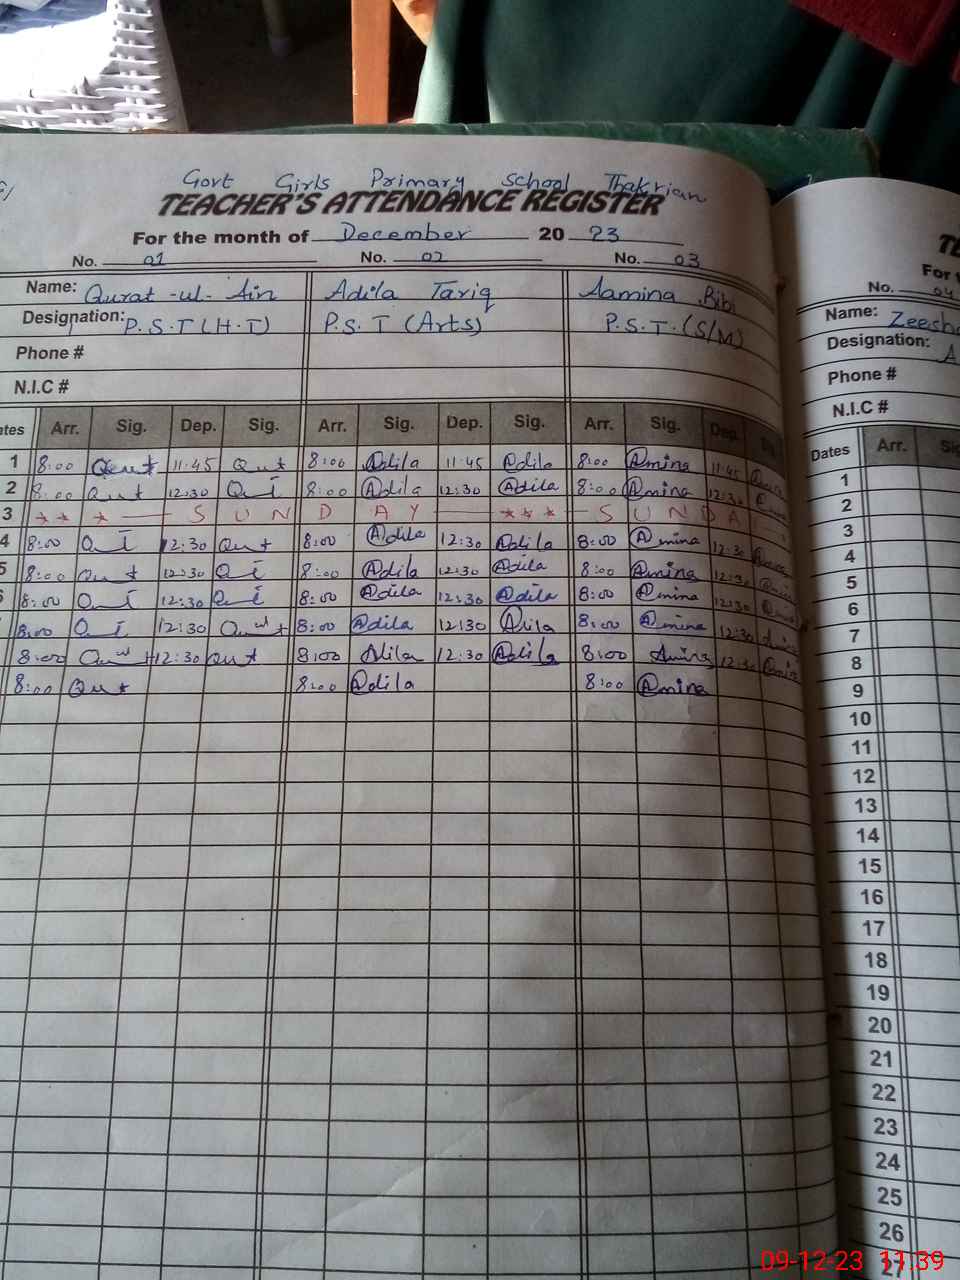 Govt Girls Primary School Thakrian
TEACHER'S ATTENDANCE REGISTER
For the month of December 20 23
No. 01 No. 02 No. 03
Name: Qurat-ul-Ain Adila Tariq Aamina Bibi
Designation: P.S.T (H.T) P.S.T (Arts) P.S.T. (S/M)
Phone #
N.I.C #
Arr. Sig. Dep. Sig. Arr. Sig. Dep. Sig. Arr. Sig. Dep.
1 8:00 11:45 8:00 Adila 11:45 Adila 8:00 Amina 11:45
2 8:00 12:30 8:00 Adila 12:30 Adila 8:00 Amina 12:30
3 * * * - S U N D A Y - *** - S U N D A
4 8:00 12:30 8:00 Adila 12:30 Adila 8:00 Amina 12:30
5 8:00 12:30 8:00 Adila 12:30 Adila 8:00 Amina 12:30
8:00 12:30 8:00 Adila 12:30 Adila 8:00 Amina 12:30
8:00 12:30 8:00 Adila 12:30 8:00 Amina 12:30
8:00 12:30 8:00 Adila 12:30 Adila 8:00 12:30
8:00 8:00 Adila 8:00 Amina
No. 04
Name: Zeesh
Designation: A
Phone #
N.I.C #
Dates Arr.
1
2
3
4
5
6
7
8
9
10
11
12
13
14
15
16
17
18
19
20
21
22
23
24
25
26
27
09-12-23 11:39